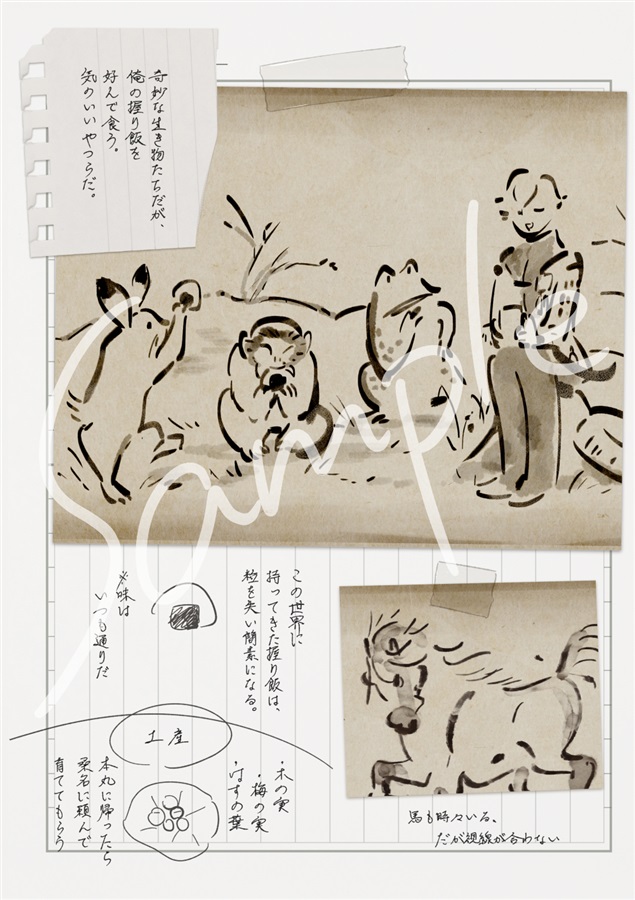 奇妙な生き物たちだが、
俺の握り飯を
好んで食う。
気のいいやつらだ。
Sample
この世界に
持ってきた握り飯は、
粒を失い簡素になる。
※味は
いつも通りだ
土産
・木の実
・梅の実
・はすの葉
本丸に帰ったら
桑名に頼んで
育ててもらう
馬も時々いる、
だが視線が合わない